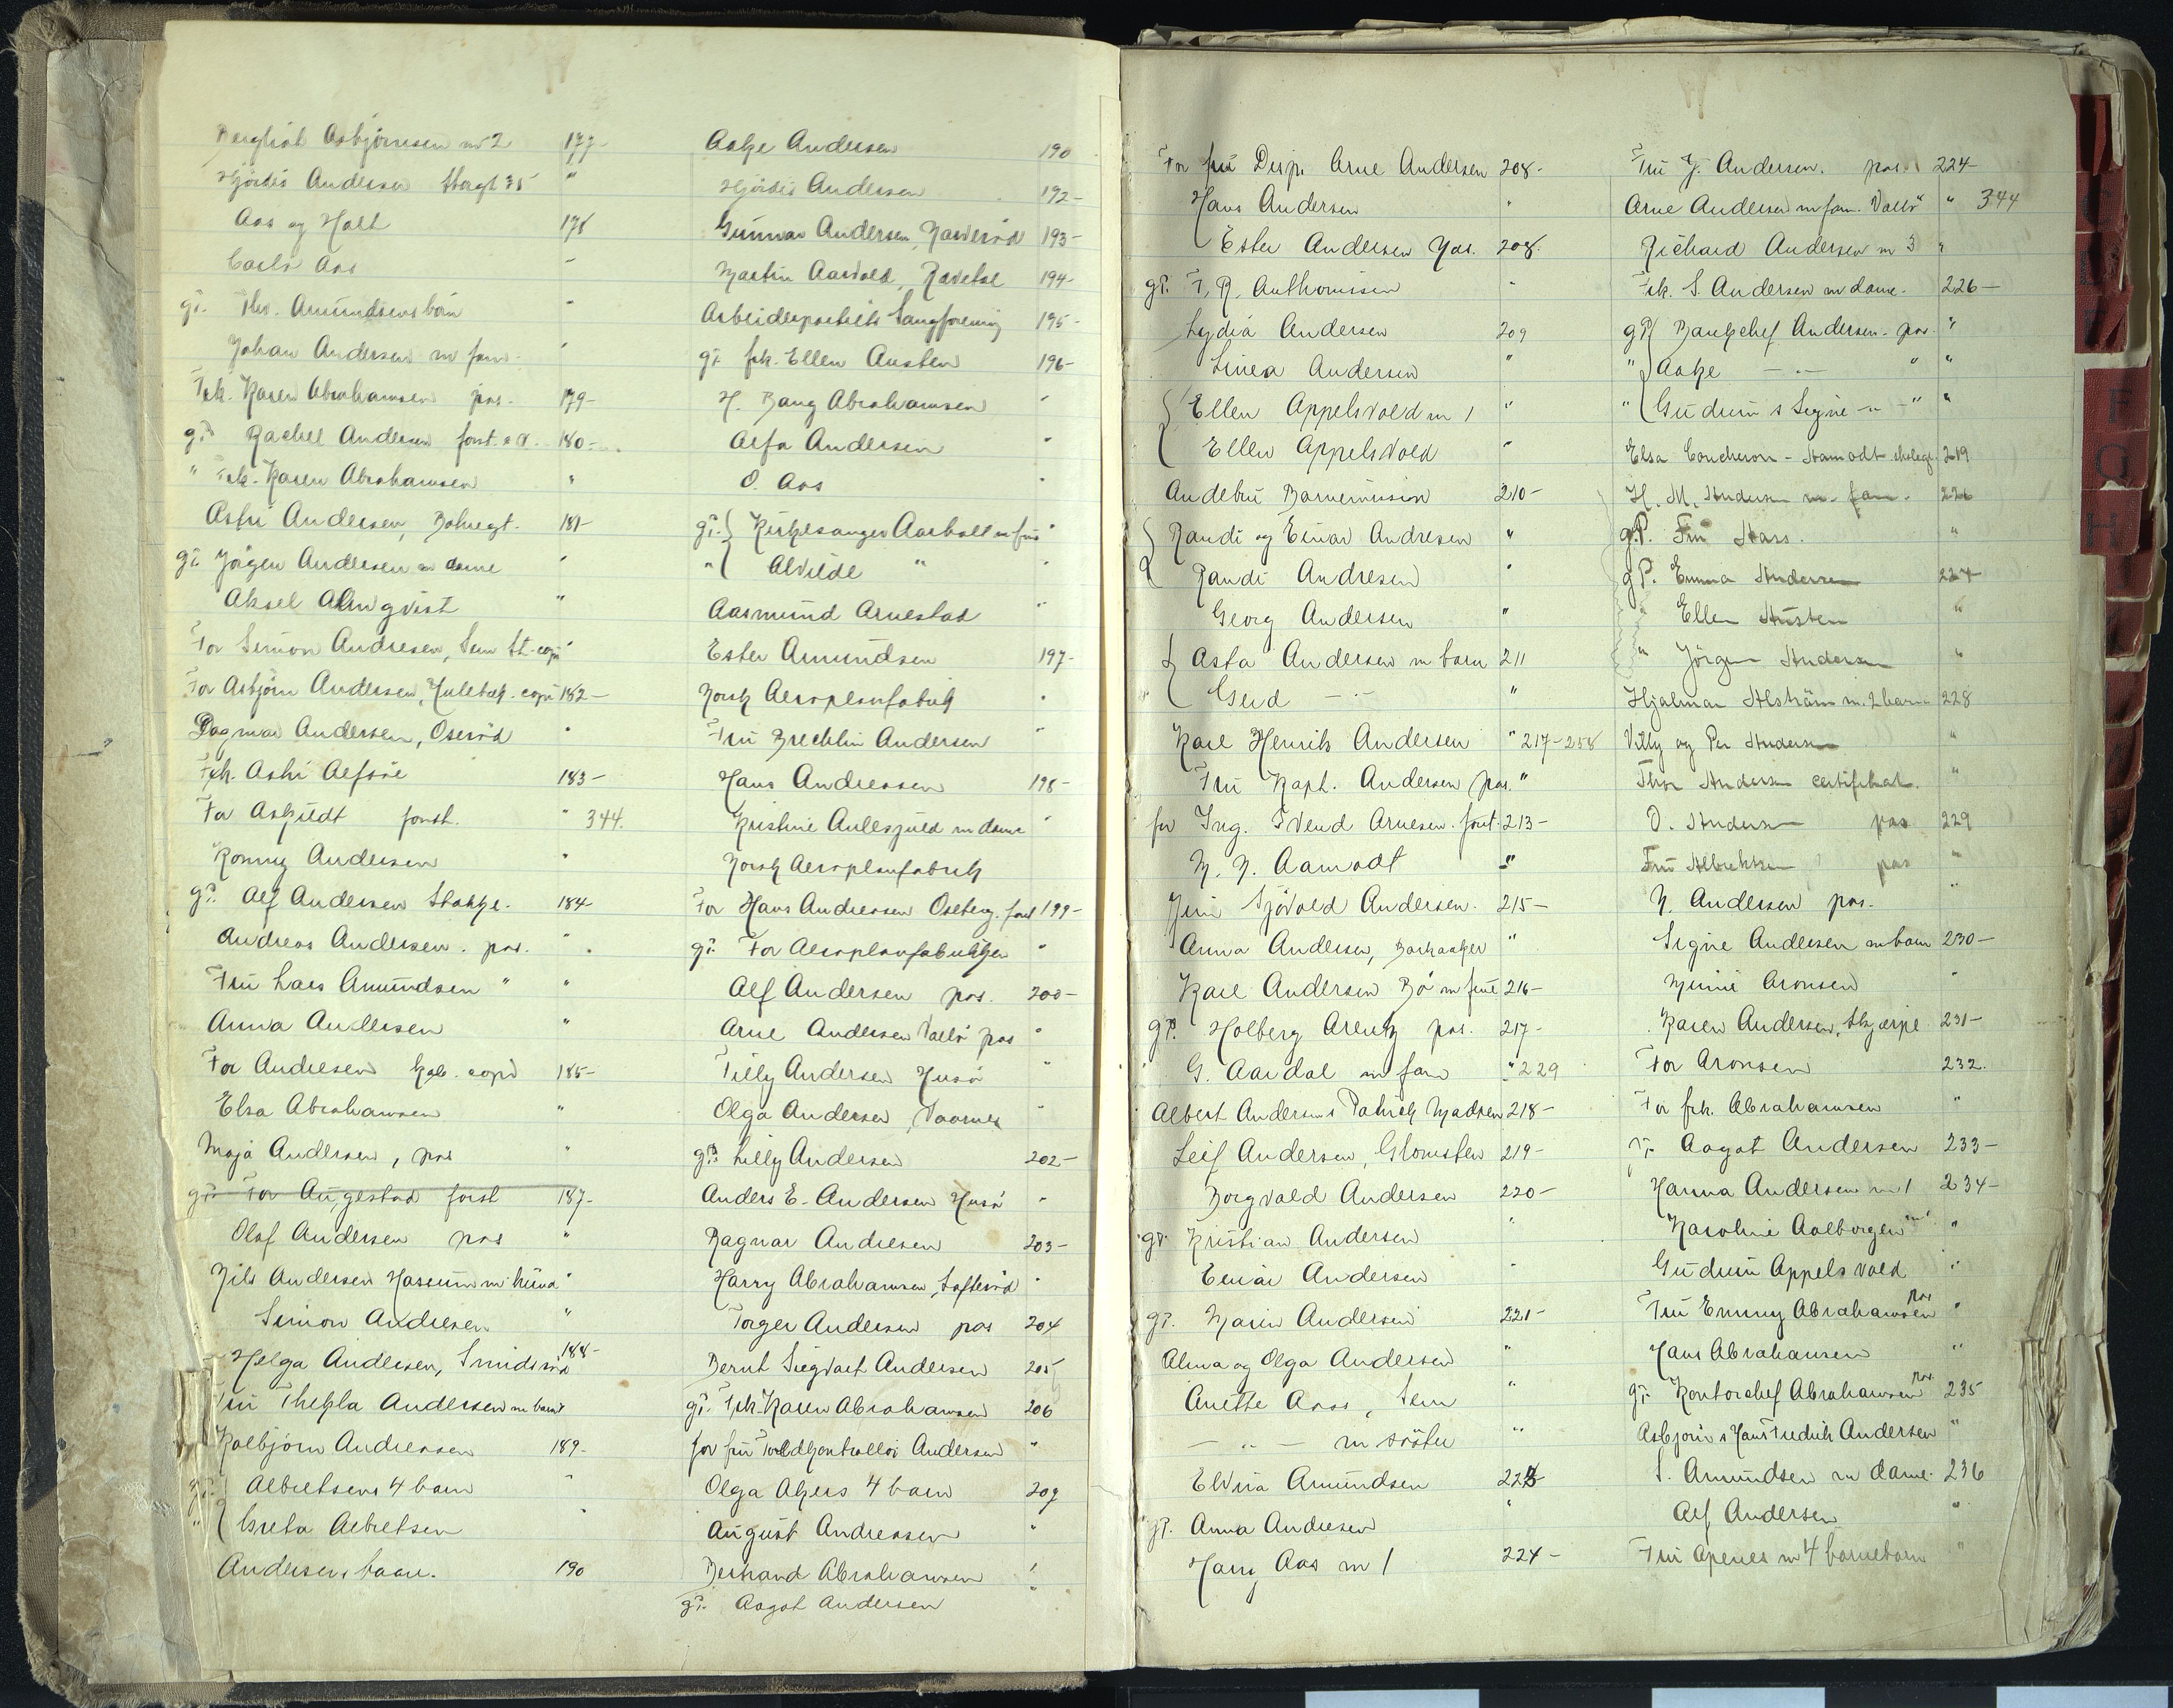 Asbjörnsen m 2 177-
Hjördis Andersen Storgt 35 "
Aas og Holt 178
Carls Aas "
gP. Thv. Amundsens barn "
Johan Andersen m fam. "
Frk. Karen Abrahamsen pas. 179-
gP. Rachel Andersen forst. 180-
" Frk. Karen Abrahamsen "
Andersen, 181-
gP. Jörgen Andersen m dame "
Aksel Almqvist "
For Simon Andresen, Sem st. copi "
For Asbjörn Andersen, copi 182-
Dagmar Andersen, Oseröd "
Frk. 183-
For Askildt forst. " 344.
Ronny Andersen "
gP. Alf Andersen Stokke. 184-
Andreas Andersen. pas. "
Fru Lars Amundsen " "
Anna Andersen "
For Andresen kab. copi 185-
Elsa Abrahamsen "
Maja Andersen, pas "
gP. For Augestad forst 187-
Olaf Andersen pas "
Nils Andersen "
Simon Andresen "
Helga Andersen, Smidsröd 188-
Fru Thekla Andersen m barn
Kolbjörn Andreassen 189-
gP. Albretsens 4 barn "
" Greta Albretsen "
Andersens barn. 190
Aake Andersen 190
Hjördis Andersen 192-
Gunnar Andersen, 193-
Martin Aasvold, 194-
Arbeiderpartiets Sangforening 195-
gP. frk. Ellen Austen 196-
H. Bang Abrahamsen "
Alfa Andersen "
O. Aas "
gP. Kirkesanger Aarholt m fru "
" Alvilde " "
Aasmund Arnestad "
Ester Amundsen 197-
Norsk Aeroplanfabrik "
Fru Andersen "
Hans Andreassen 198-
Kristine m dame "
Norsk Aeroplanfabrik
For Hans Andreassen Oseberg. forst 199-
gP. For Aeroplanfabrikken "
Alf Andersen pas. 200-
Arne Andersen Vallö pas "
Tilly Andersen Husö "
Olga Andersen, "
gP. Lilly Andersen 202-
Anders E. Andersen Husö "
Ragnar Andresen 203-
Harry Abrahamsen, "
Torger Andersen pas 204
Bernt Sigvart Andersen 205
gP. Frk. Karen Abrahamsen 206
for fru Toldkontrollör Andersen "
Olga Akers 4 barn 207
August Andreassen "
Abrahamsen "
gP. Aagot Andersen "
For fru Disp. Arne Andersen 208-
Hans Andersen "
Ester Andersen pas. 208.
gP. F. R. Anthonissen "
Lydia Andersen 209
Linea Andersen "
Ellen Appelsvold m 1 "
Ellen Appelsvold "
Andebu Barnemission 210-
Randi og Einar Andresen "
Randi Andresen "
Georg Andersen "
Asta Andersen m barn 211
Gerd — " — "
Karl Henrik Andersen " 217-258
Fru Kapt. Andersen pas. "
for Ing. Svend Arnesen. forst. 213-
N. N. Aamodt "
Sjövold Andersen. 215-
Anna Andersen, Barkaaker "
Karl Andersen Bö m frue 216-
gP. Holberg Arentz pas. 217-
G. Aardal m fam " 229
Albert Andersen & Patrick Madsen 218-
Leif Andersen, 219-
Borgvald Andersen 220-
gP. Kristian Andersen "
Einar Andersen "
gP. Marin Andersen 221-
Alma og Olga Andersen "
Anette Aass, Sem "
— " — m söster "
Elvira Amundsen 223-
gP. Anna Andresen "
Harry Aas m 1 224-
Fru J. Andersen. pas. 224-
Arne Andersen m fam. Vallö " 344
Richard Andersen m 3 "
Frk. S. Andersen m dame. 226-
gP. Bankchef Andersen. pas. "
" Aake — " — " "
" Gudrun & Signe — " — " "
Elsa Coucheron-Aamodt 219
H. M. Andersen m. fam. 226
gP. Fru Aars. "
gP. Emma Andersen 227
" Ellen Austen "
" Jörgen Andersen "
Hjalmar Alström m. 2 barn 228
Villy og Per Andersen "
Thor Andersen certifikat. "
O. Andersen pas 229
Fru Albrektsen pas "
N. Andersen pas. "
Signe Andersen m barn 230-
Aronsen "
Karen Andersen, 231-
For Aronsen 232.
For frk. Abrahamsen "
gP. Aagot Andersen 233-
Hanna Andersen m 1 234-
Karoline Aalborgen "
Gudrun Appelsvold "
Fru Emmy Abrahamsen pas "
Hans Abrahamsen "
gP. Kontorchef Abrahamsen pas. 235
Asbjörn & Hans Fredrik Andersen "
S. Amundsen m dame. 236
Alf Andersen "
Fru Apenes m 4 barnebarn "